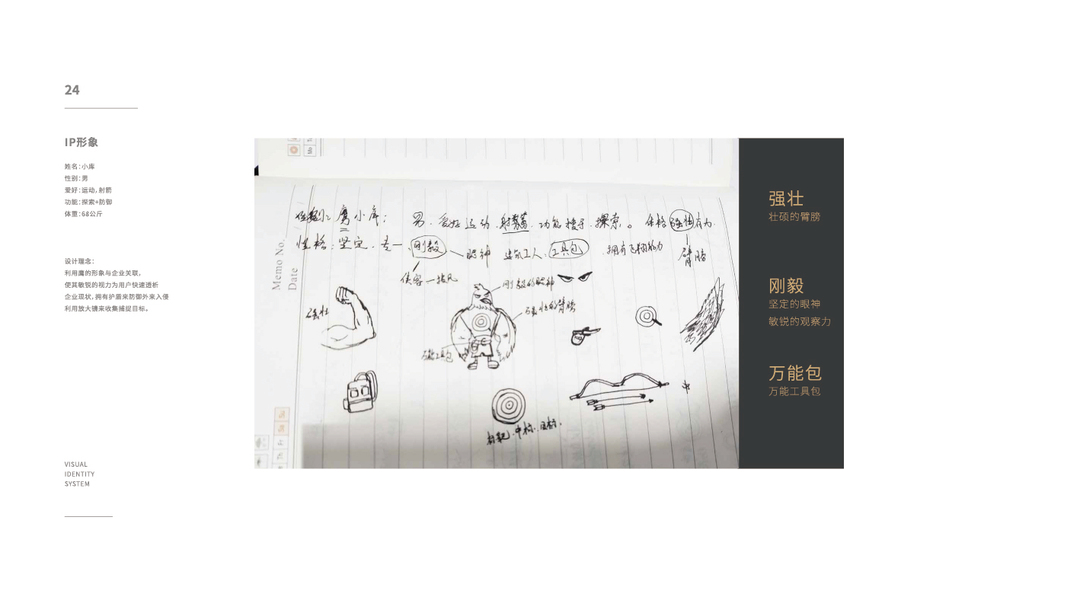 24
IP形象
姓名:小库
性别:男
爱好:运动,射箭
功能:探索+防御
体重:68公斤
设计理念:
利用鹰的形象与企业关联,
使其敏锐的视力为用户快速透析
企业现状,拥有护盾来防御外来入侵
利用放大镜来收集捕捉目标。
VISUAL
IDENTITY
SYSTEM
Memo No.
Date
鹰小库: 男. 爱好运动. 功能 探索。 体格强构有力.
性格:坚定. 刚毅 — 眼神 工具包 拥有飞翔能力 臂膀
侠客一
刚毅的眼神
强壮
强壮的臂膀
工具包
中标.
强壮
壮硕的臂膀
刚毅
坚定的眼神
敏锐的观察力
万能包
万能工具包